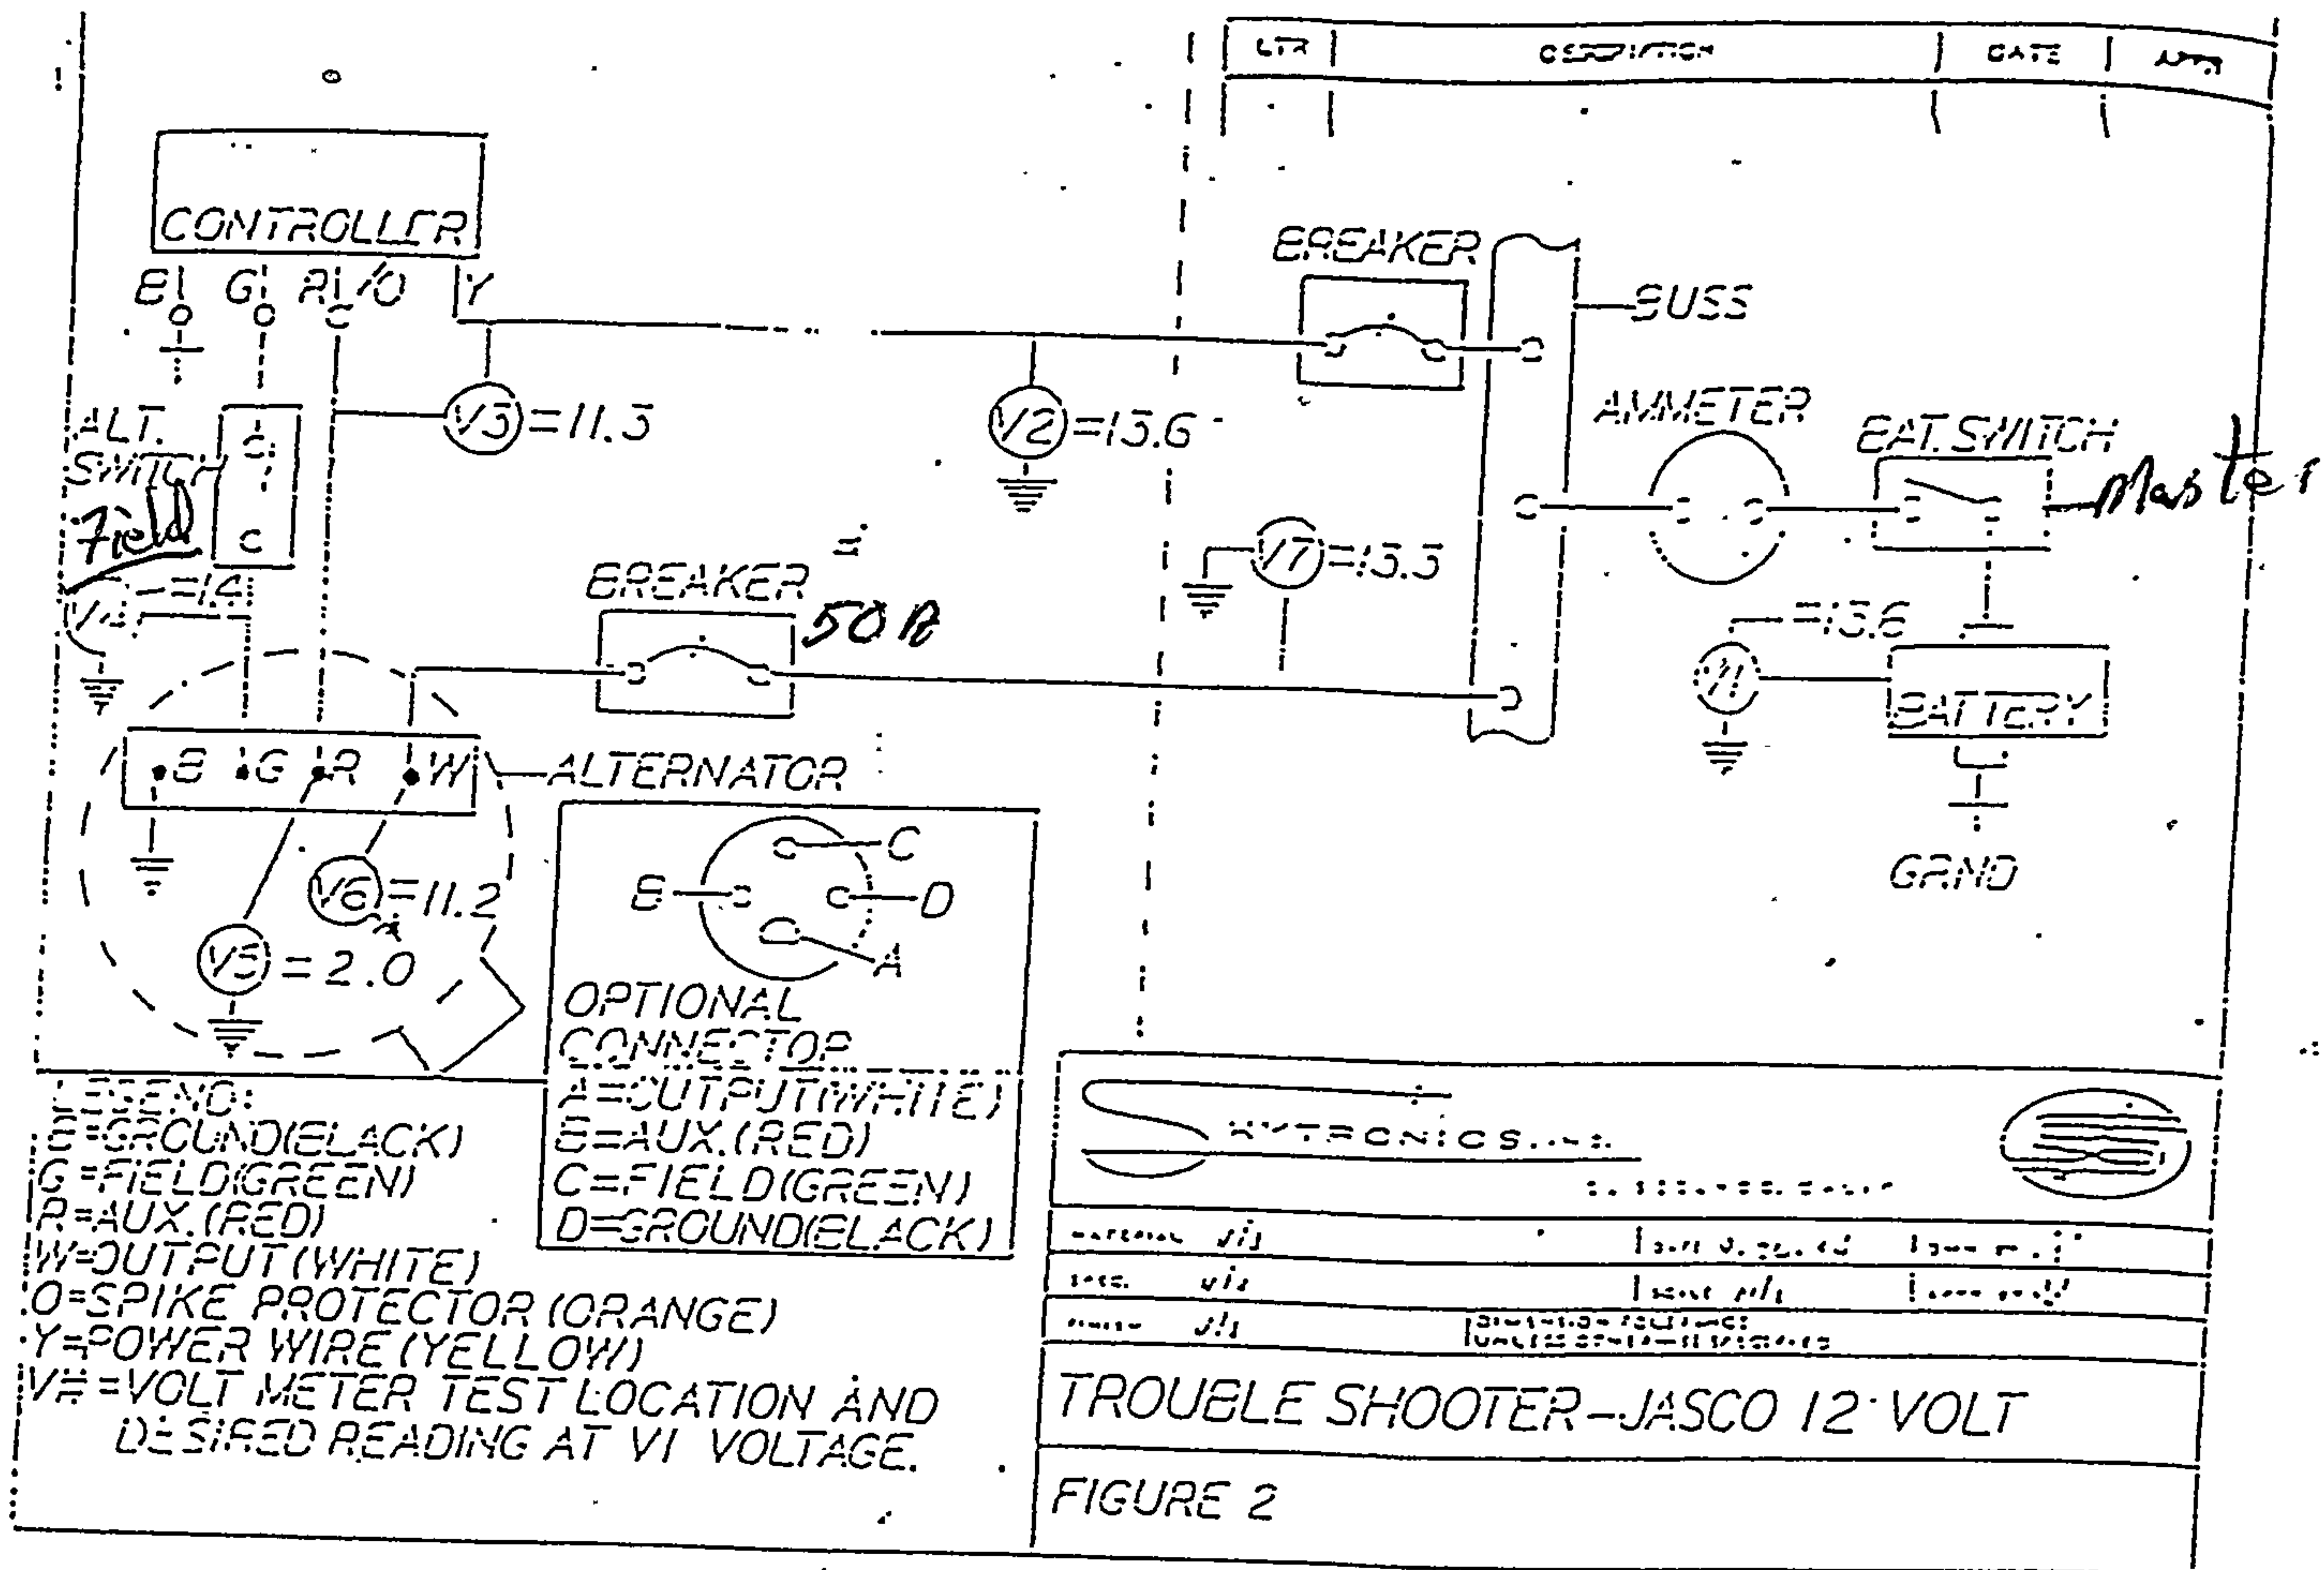 LTR DESCRIPTION DATE APPR
CONTROLLER
B G R/O Y
BREAKER
BUSS
V3 =11.3
V2 =13.6
ALT.
SWITCH
Field
AMMETER
BAT. SWITCH
Master
V4 =1.4
BREAKER
50A
V7 =13.3
V1 =13.6
BATTERY
GRND
B G R W
ALTERNATOR
V6 =11.2
V5 =2.0
C
B
D
A
OPTIONAL
CONNECTOR
A=OUTPUT(WHITE)
B=AUX.(RED)
C=FIELD(GREEN)
D=GROUND(BLACK)
LEGEND:
B=GROUND(BLACK)
G=FIELD(GREEN)
R=AUX.(RED)
W=OUTPUT(WHITE)
O=SPIKE PROTECTOR(ORANGE)
Y=POWER WIRE(YELLOW)
V#=VOLT METER TEST LOCATION AND
DESIRED READING AT V1 VOLTAGE.
SKYTRONICS
MATERIAL
TROUBLE SHOOTER-JASCO 12 VOLT
FIGURE 2